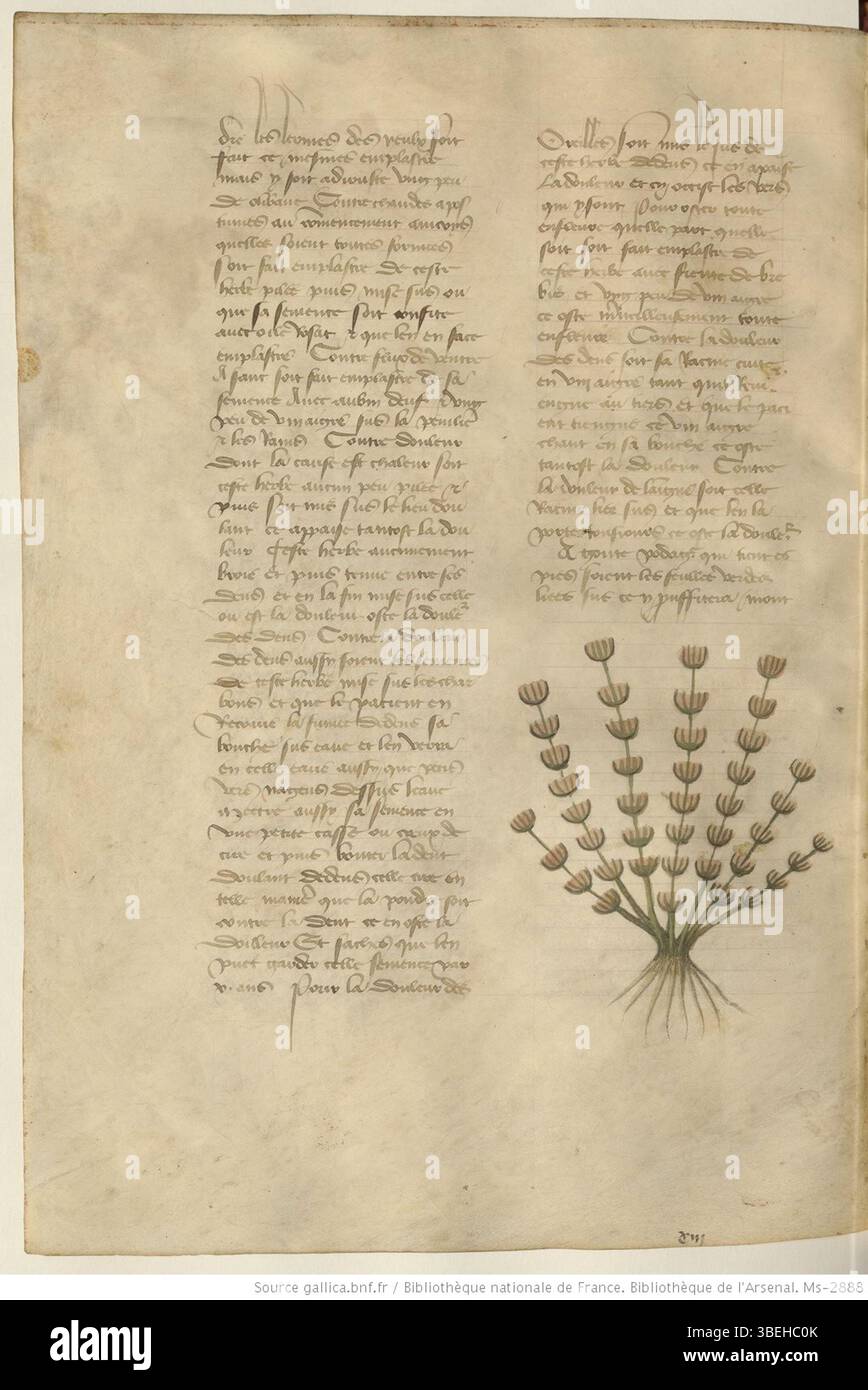 dre les lermes des yeulx soit
fait ce mesmes emplastre
mais y soit adiouste ung peu
de olibane Contre chaudes apos
tumes au commencement aincois
quelles soient toutes formees
soit fait emplastre de ceste
herbe pilee puis mise sus ou
que sa semence soit confite
avec oile rosat et que len en face
emplastre Contre flux de ventre
A sanc soit fait emplastre de sa
semence avec aubin deuf et ung
peu de vin aigre sus la penilliere
et les rains Contre douleur
dont la cause est chaleur soit
ceste herbe aucun peu pilee et
puis soit mis sus le lieu dou
lant ce appaise tantost la dou
leur Ceste herbe aucunement
broiee et puis tenue entre ses
dens et en la fin mise sus celle
ou est la douleur oste la douleur
des dens Contre douleur
des dens aussy soient les semences
de ceste herbe mise sus les char
bons et que le patient en
recoive la fumee dedens sa
bouche sus eaue et len verra
en celle eaue aussy que petis
vers nagens dessus leaue
mettre aussy sa semence en
une petite casse ou coup de
cire et puis bouter la dent
doulant dedens celle cire en
telle maniere que la pouldre soit
contre la dent ce en oste la
douleur Et saches que len
puet garder celle semence par
x ans Pour la douleur des
Oreilles soit mis le jus de
ceste herbe dedens ce en apaise
la douleur et cy occist les vers
qui y sont Pour oster toute
enfleure quelle part quelle
soit soit fait emplastre de
ceste herbe avec fiente de bre
bis et ung peu de vin aigre
ce oste merveilleusement toute
enfleure Contre la douleur
des dens soit sa racine cuite
en vin aigre tant quil revi
engne au tiers et que le paci
ent tiengne ce vin aigre
chaut en sa bouche ce oste
tantost la douleur Contre
la douleur de laingne soit celle
racine liee sus et que len la
porte tousiours ce oste la douleur
A goute podagre qui tient es
pies soient les feulles verdes
liees sus ce y prouffitera mont
Source gallica.bnf.fr / Bibliothèque nationale de France. Bibliothèque de l'Arsenal. Ms-2888
alamy
Image ID: 3BEHC0K
www.alamy.com